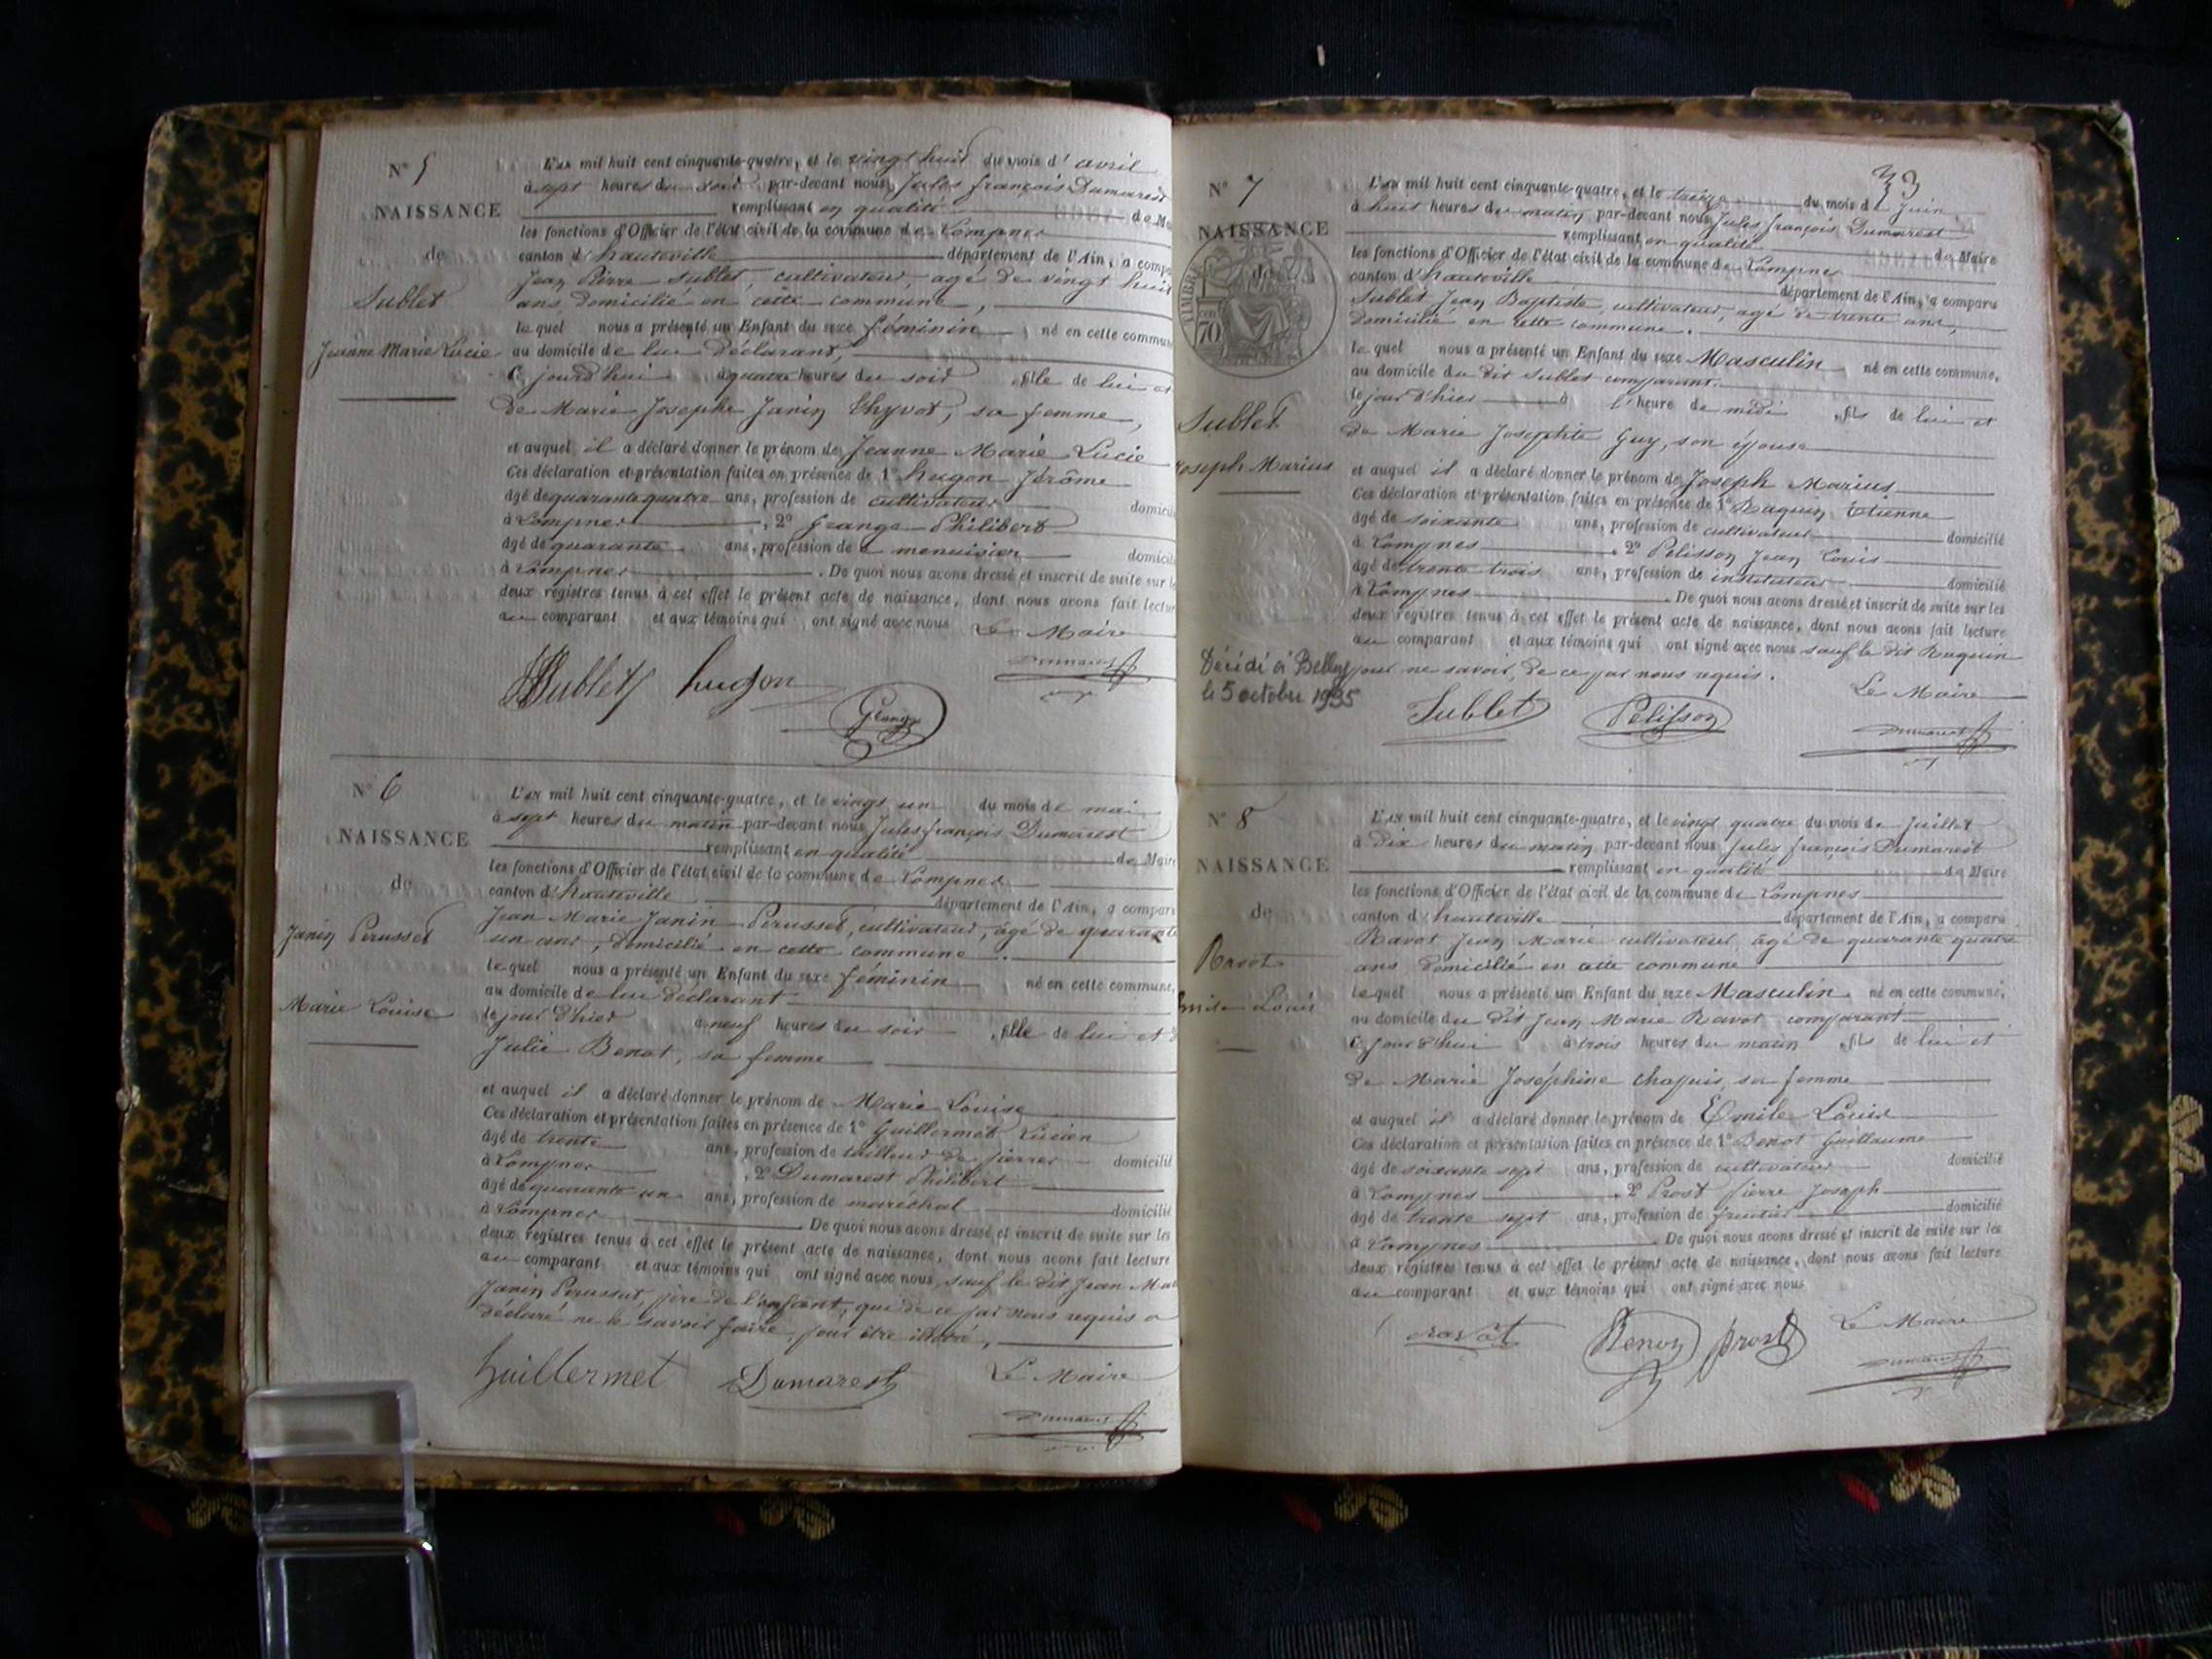 N° 5
NAISSANCE
de
Sublet
Jeanne Marie Lucie
L'an mil huit cent cinquante-quatre, et le vingt huit du mois d'avril
à sept heures du soir par-devant nous, Jules françois Dumarest
remplissant en qualité de Ma
les fonctions d'Officier de l'état civil de la commune de Lompnes
canton d'hauteville département de l'Ain, a compa
Jean Pierre Sublet, cultivateur, agé de vingt huit
ans, domicilié en cette commune,
lequel nous a présenté un Enfant du sexe féminin né en cette commun
au domicile de lui déclarant,
Ce jourd'hui à quatre heures du soir fille de lui et
de Marie Josephe Janin Thyvot, sa femme,
et auquel il a déclaré donner le prénom de Jeanne Marie Lucie
Ces déclaration et présentation faites en présence de 1° hugon Jérôme
âgé de quarante quatre ans, profession de cultivateur domicili
à Lompnes, 2° Grange Philibert
âgé de quarante ans, profession de menuisier domicili
à Lompnes. De quoi nous avons dressé et inscrit de suite sur le
deux registres tenus à cet effet le présent acte de naissance, dont nous avons fait lectur
au comparant et aux témoins qui ont signé avec nous Le Maire
Sublet hugon Grange Dumarest
N° 6
NAISSANCE
de
Janin Perusset
Marie Louise
L'an mil huit cent cinquante-quatre, et le vingt un du mois de mai
à sept heures du matin par-devant nous Jules françois Dumarest
remplissant en qualité de Maire
les fonctions d'Officier de l'état civil de la commune de Lompnes
canton d'hauteville département de l'Ain, a compar
Jean Marie Janin Perusset, cultivateur, âgé de quarante
un ans, domicilié en cette commune.
lequel nous a présenté un Enfant du sexe féminin né en cette commune,
au domicile de lui déclarant
le jour d'hier à neuf heures du soir, fille de lui et d
Julie Benot, sa femme
et auquel il a déclaré donner le prénom de Marie Louise
Ces déclaration et présentation faites en présence de 1° Guillermet Lucien
âgé de trente ans, profession de tailleur de pierres domicilié
à Lompnes, 2° Dumarest Philibert
âgé de quarante un ans, profession de maréchal domicilié
à Lompnes. De quoi nous avons dressé et inscrit de suite sur les
deux registres tenus à cet effet le présent acte de naissance, dont nous avons fait lecture
au comparant et aux témoins qui ont signé avec nous, sauf le dit Jean Mar
Janin Perusset, père de l'enfant, qui de ce par nous requis a
déclaré ne le savoir faire, pour être illétré,
Guillermet Dumarest Le Maire
Dumarest
33
N° 7
NAISSANCE
de
TIMBRE
70
Sublet
Joseph Marius
Décédé à Belley
le 5 octobre 1935
L'an mil huit cent cinquante-quatre, et le treize du mois de Juin
à huit heures du matin par-devant nous Jules françois Dumarest
remplissant en qualité de Maire
les fonctions d'Officier de l'état civil de la commune de Lompnes
canton d'hauteville département de l'Ain, a comparu
Sublet Jean Baptiste, cultivateur, agé de trente ans,
domicilié en cette commune.
lequel nous a présenté un Enfant du sexe Masculin né en cette commune,
au domicile du dit Sublet comparant.
le jour d'hier à l'heure de midi, fils de lui et
de Marie Josephte Guy, son épouse
et auquel il a déclaré donner le prénom de Joseph Marius
Ces déclaration et présentation faites en présence de 1° Raquin Etienne
âgé de soixante ans, profession de cultivateur domicilié
à Lompnes, 2° Pelisson Jean Louis
âgé de trente trois ans, profession de instituteur domicilié
à Lompnes. De quoi nous avons dressé et inscrit de suite sur les
deux registres tenus à cet effet le présent acte de naissance, dont nous avons fait lecture
au comparant et aux témoins qui ont signé avec nous sauf le dit Raquin
pour ne savoir, de ce par nous requis.
Le Maire
Sublet Pelisson Dumarest
N° 8
NAISSANCE
de
Ravot
Emile Louis
L'an mil huit cent cinquante-quatre, et le vingt quatre du mois de Juillet
à dix heures du matin par-devant nous Jules françois Dumarest
remplissant en qualité de Maire
les fonctions d'Officier de l'état civil de la commune de Lompnes
canton d'hauteville département de l'Ain, a comparu
Ravot Jean Marie cultivateur, âgé de quarante quatre
ans domicilié en cette commune
lequel nous a présenté un Enfant du sexe Masculin né en cette commune,
au domicile du dit Jean Marie Ravot comparant
Ce jourd'hui à trois heures du matin, fils de lui et
de Marie Joséphine Chapuis sa femme
et auquel il a déclaré donner le prénom de Emile Louis
Ces déclaration et présentation faites en présence de 1° Benot Guillaume
âgé de soixante sept ans, profession de cultivateur domicilié
à Lompnes, 2° Prost Pierre Joseph
âgé de trente sept ans, profession de fruitier domicilié
à Lompnes. De quoi nous avons dressé et inscrit de suite sur les
deux registres tenus à cet effet le présent acte de naissance, dont nous avons fait lecture
au comparant et aux témoins qui ont signé avec nous
Ravot Benot Prost Le Maire
Dumarest